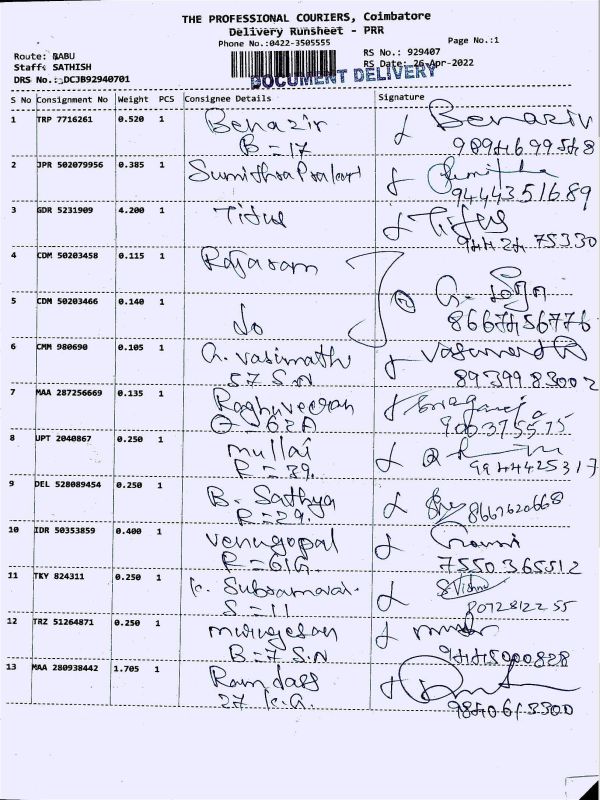 THE PROFESSIONAL COURIERS, Coimbatore
Delivery Runsheet - PRR
Phone No.:0422-3505555
Page No.:1
Route: BABU
RS No.: 929407
Staff: SATHISH
RS Date: 26-Apr-2022
DRS No.: DCJB92940701
DOCUMENT DELIVERY
S No Consignment No Weight PCS Consignee Details Signature
1 TRP 7716261 0.520 1 Benazir Benazir
B=17
2 JPR 502079956 0.385 1 Sumithra
9444351689
3 GDR 5231909 4.200 1 Titus Titus
4 CDM 50203458 0.115 1 Rajaram
5 CDM 50203466 0.140 1 do
8667456776
6 CMM 980690 0.105 1 G. Vasumathi
57 S.N 8939983002
7 MAA 287256669 0.135 1 Raghuveeran
9003755575
8 UPT 2040867 0.250 1 mullai
R=39. 9944425317
9 DEL 528089454 0.250 1 B. Sathya
R=29. 8667620668
10 IDR 50353859 0.400 1 Venugopal
R=61G 7550365512
11 TKY 824311 0.250 1
S=11 8072812255
12 TRZ 51264871 0.250 1 murugesan
B=7 S.N 9445900828
13 MAA 280938442 1.705 1 Ramdass
27 K.G. 9840613300